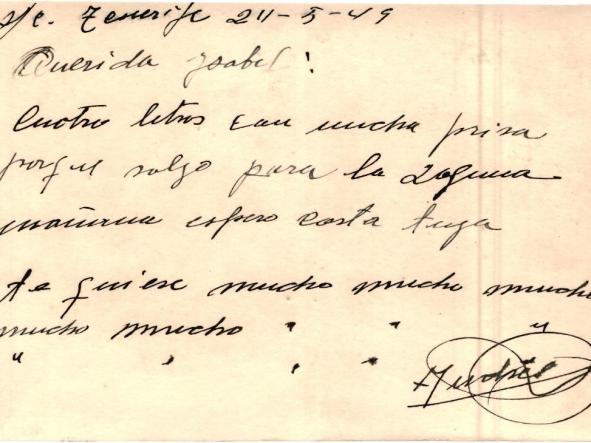 s/c. Tenerife 24-5-49
Querida Ysabel!
Cuatro letras con mucha prisa
porque salgo para la Laguna
mañana espero carta tuya
te quiere mucho mucho mucho
mucho mucho " " "
" " " "